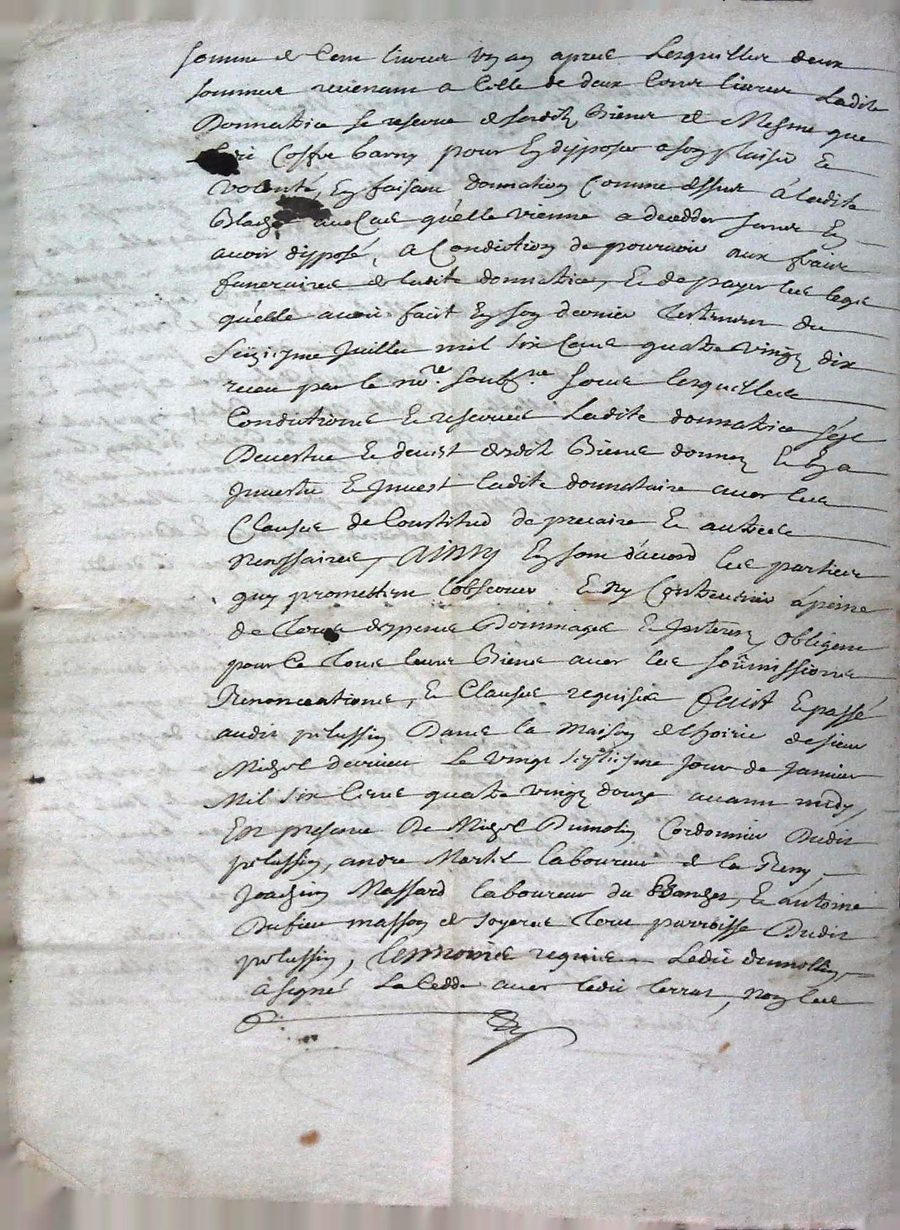 somme de Cent livres Un an apres Lesquelles deux
sommes revenant a Celle de deux Cens livres Ladite
Donnatrice se reserve de sesdits Biens et Mesme que
Coffre garny pour En disposer a son plaisir Et
volonté, En faisant donnation Comme dessus à Ladite
Blaize au Cas qu'elle vienne a decedder sans En
avoir disposé, a Condition de pourvoir aux frais
funeraires de ladite donnatrice, Et de payer les legs
qu'elle avoit fait En son dernier Testament du
Seiziesme Juillet mil six Cens quatre Vingt dix
receu par le no.re soub.ne Sous lesquelles
Conditions Et reserves Ladite donnatrice s'est
Devestue Et devest desdits Biens donnez Et En a
Investu Et Invest ladite donnataire avec les
Clauses de Constitud de precaire Et autres
necessaires, AINSY En sont d'acord les parties
quy promettent l'observer Et N'y Contrevenir à peine
de Tous despens Dommages Et Interests, obligent
pour Ce Tous leurs Biens avec les soûmissions
Renonceations, Et Clauses requises Faict Et passé
audit pelussin Dans la Maison de l'hoirie de sieur
Michel devrieu Le Vingt septiesme Jour de Janvier
Mil six Cens quatre Vingt douze avant midy,
En presence De Michel Dumolin Cordonnier Dudit
pelussin, andre Martel laboureur de la
Joachim Massard laboureur du Et antoine
Dufieu masson de Soyeres Tous parroisse Dudit
pelussin, Tesmoins requis Ledit dumollin
à signé La Cedde avec ledit Terrat, Non les